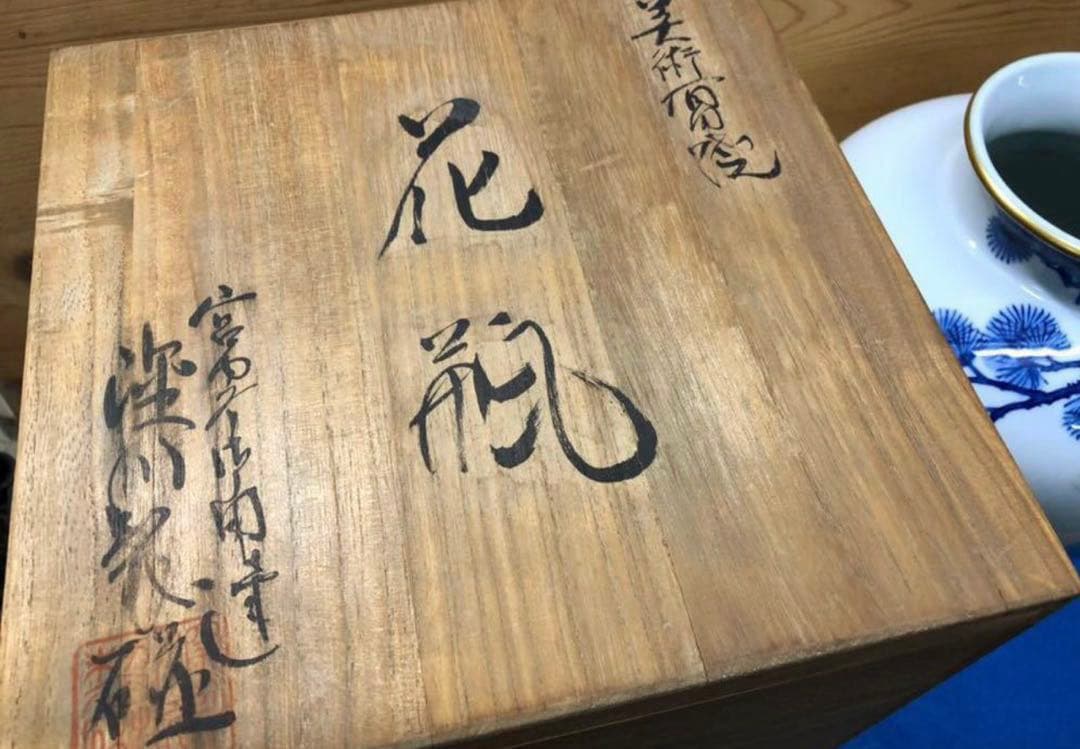 美術香院
花瓶
宮内庁御用達
深川製磁